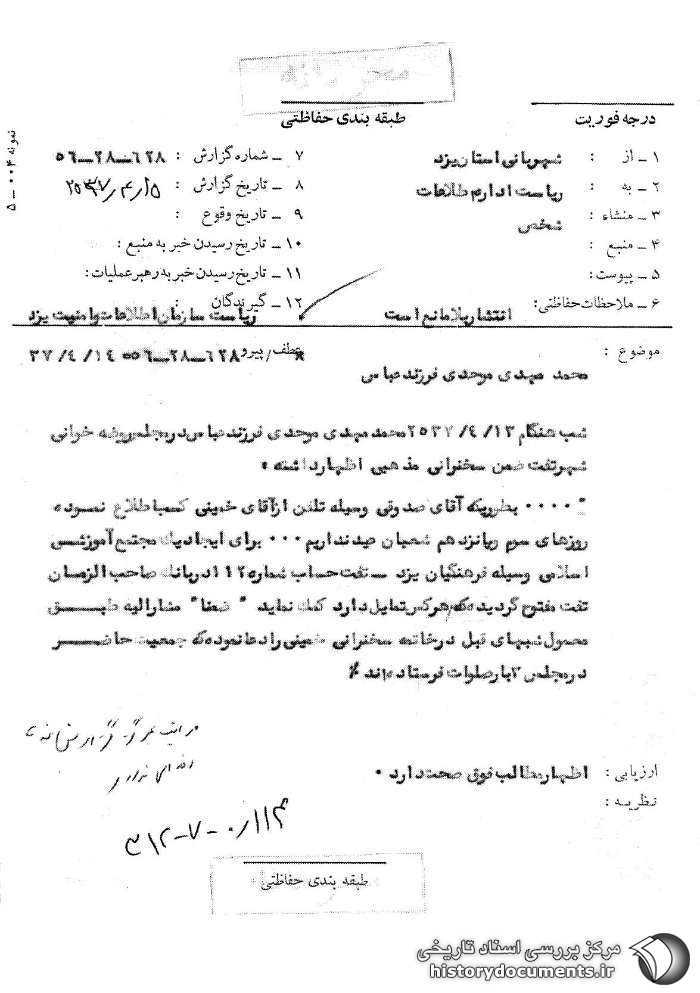 محرمانه
درجه فوریت
طبقه بندی حفاظتی
نمونه ۰۰۴ ــ ۵
۱ ــ از : شهربانی استان یزد
۲ ــ به : ریاست اداره اطلاعات
۳ ــ منشاء : شخص
۴ ــ منبع :
۵ ــ پیوست :
۶ ــ ملاحظات حفاظتی : انتشار بلامانع است
۷ ــ شماره گزارش : ۶۲۸ــ۲۸ــ۵۶
۸ ــ تاریخ گزارش : ۲۵۳۷/۴/۱۵
۹ ــ تاریخ وقوع :
۱۰ ــ تاریخ رسیدن خبر به منبع :
۱۱ ــ تاریخ رسیدن خبر به رهبر عملیات :
۱۲ ــ گیرندگان : ریاست سازمان اطلاعات وامنیت یزد
موضوع :
عطف/پیرو ۶۲۸ــ۲۸ــ۵۶ ۳۷/۴/۱۴
محمد مهدی موحدی فرزند عباس
شب هنگام ۲۵۳۷/۴/۱۳ محمد مهدی موحدی فرزند عباس در مجلس روضه خوانی
شهر تفت ضمن سخنرانی مذهبی اظهار داشته .
" ۰۰۰۰ بطوریکه آقای صدوقی وسیله تلفن از آقای خمینی کسب اطلاع نموده
روزهای سوم و پانزدهم شعبان عید نداریم ۰۰۰ برای ایجاد یك مجتمع آموزشی
اسلامی وسیله فرهنگیان یزد ــ تفت حساب شماره ۱۱۲ در بانك صاحب الزمان
تفت مفتوح گردیده که هر کس تمایل دارد کمك نماید " ضمنا" مشارالیه طبق
معمول شبهای قبل در خاتمه سخنرانی خمینی را دعا نموده که جمعیت حاضر
در مجلس ۳ بار صلوات فرستاده اند ٪
ارزیابی : اظهار مطالب فوق صحت دارد .
نظریه :
۳۱۲-۷-۰/۱۱۴
طبقه بندی حفاظتی
مرکز بررسی اسناد تاریخی
historydocuments.ir